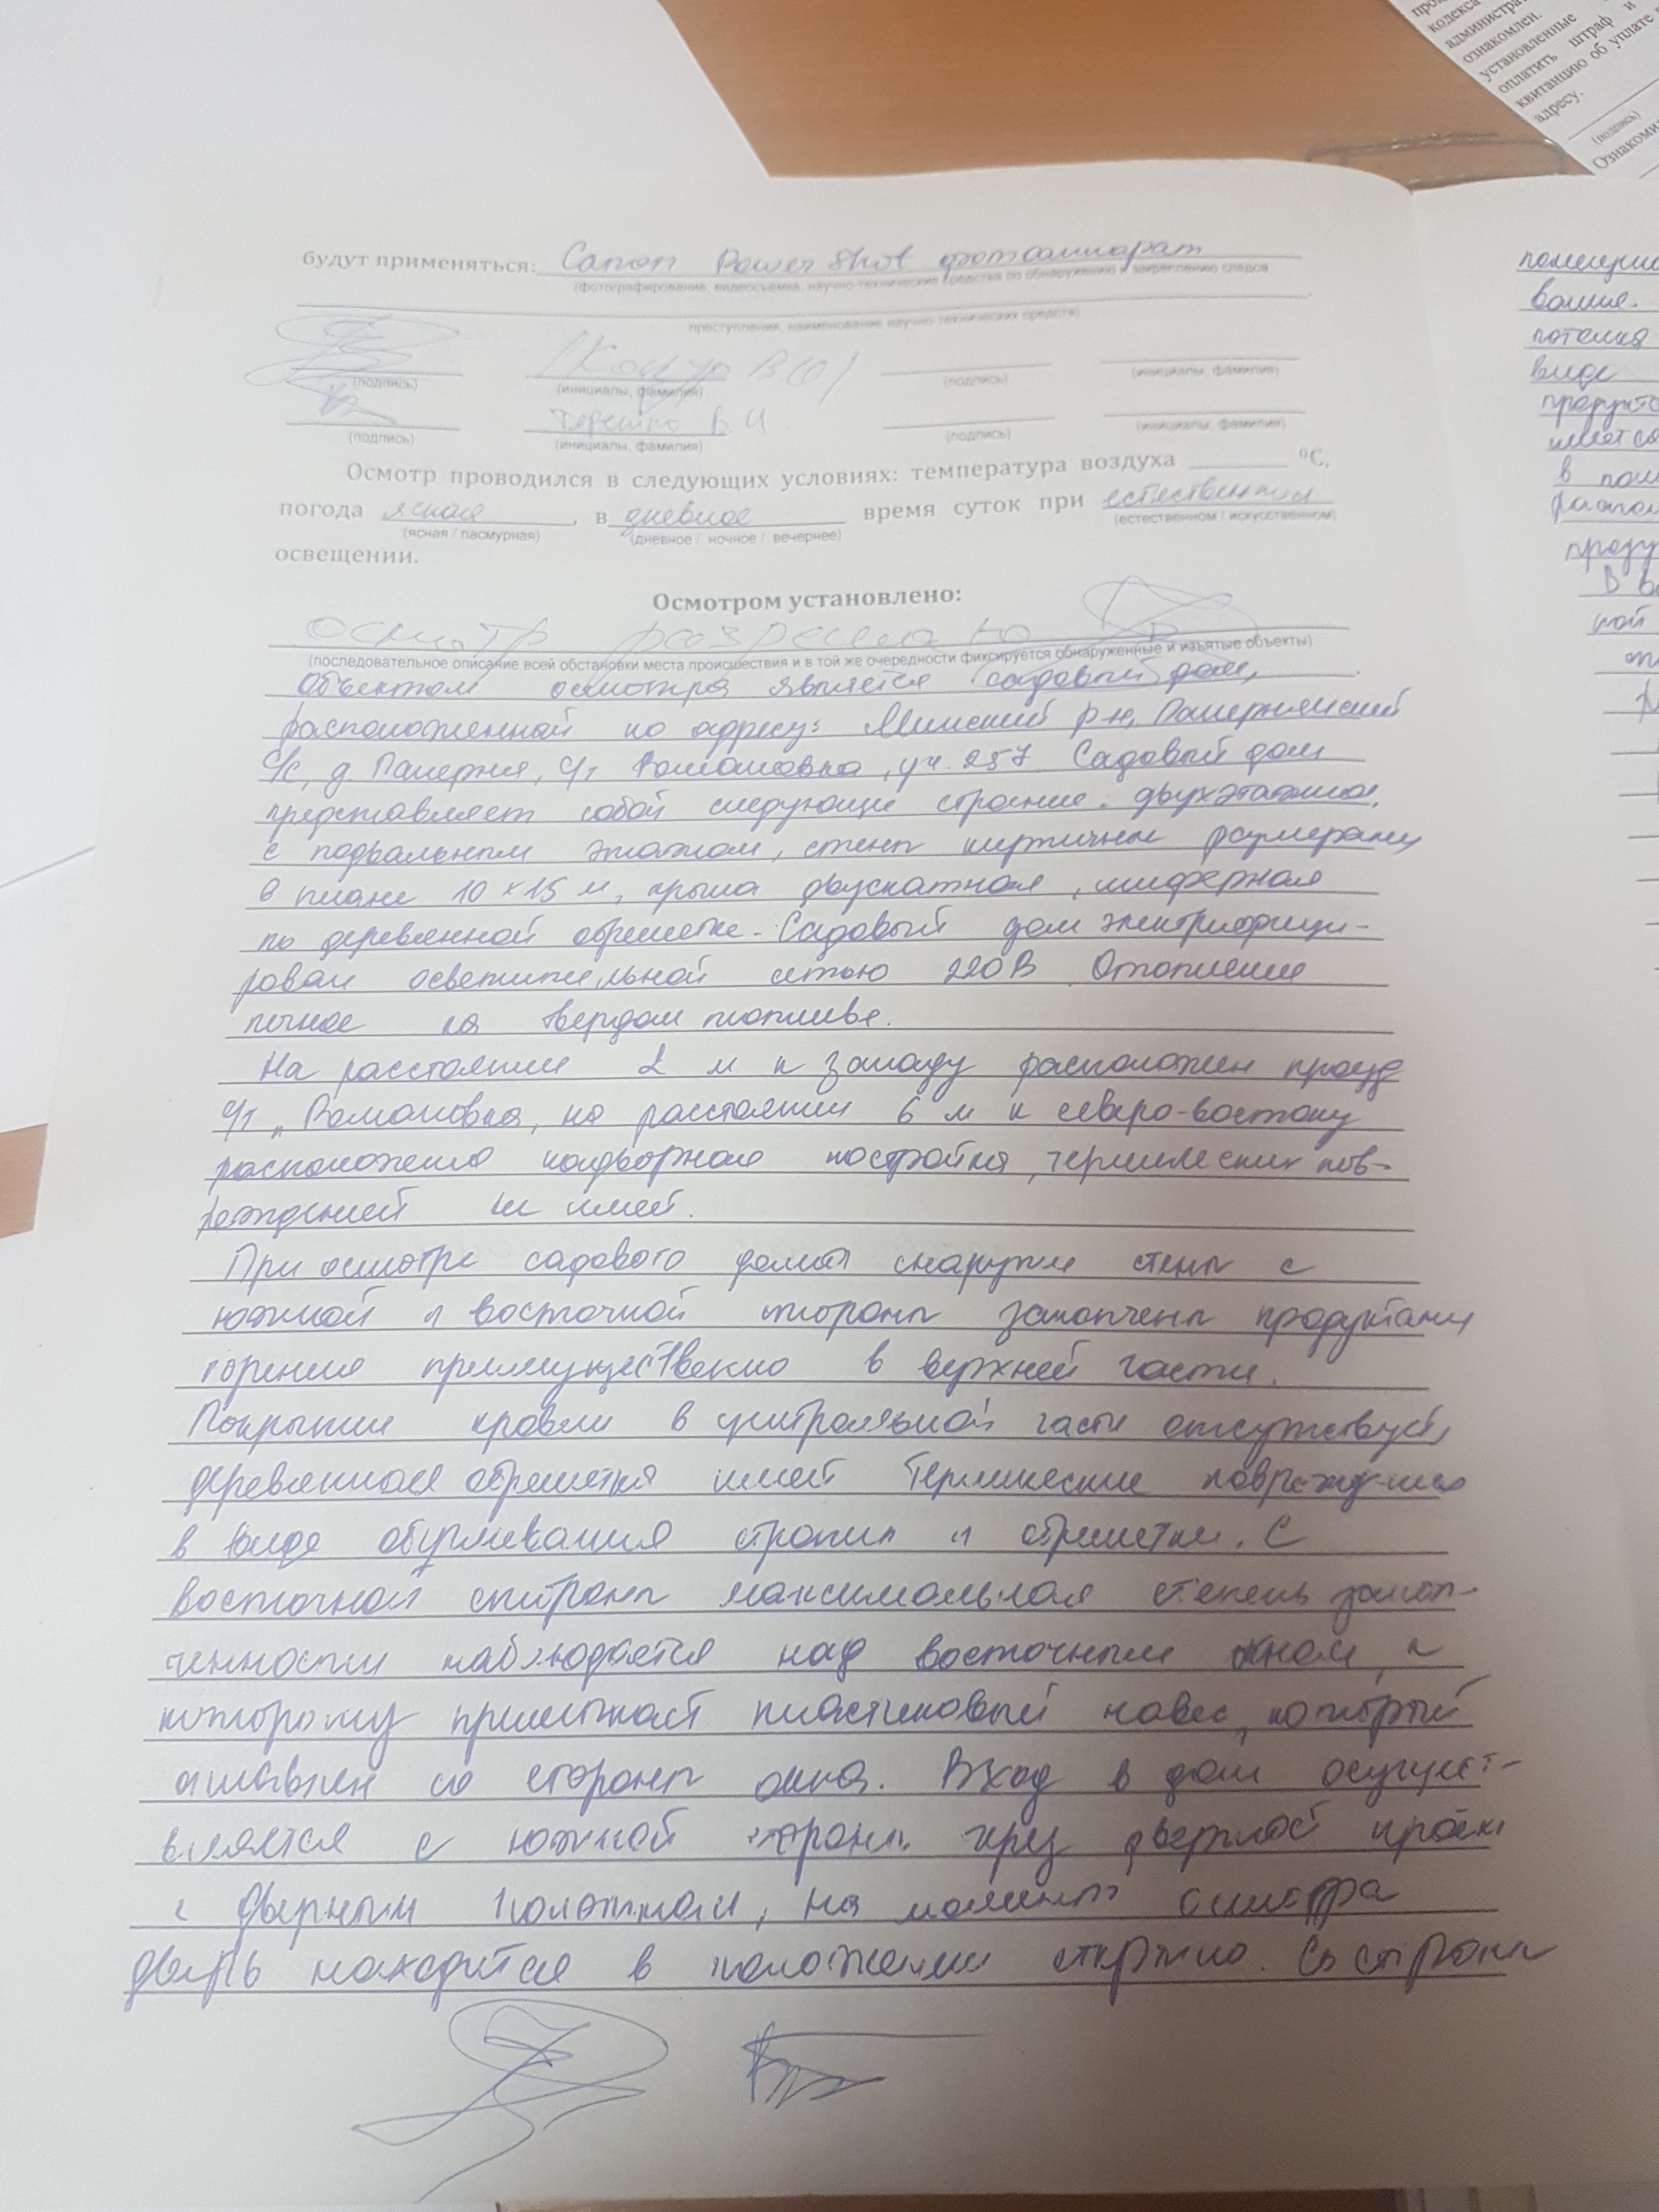 будут применяться: Canon Power Shot фотоаппарат
(фотографирование, видеосъемка, научно-технические средства по обнаружению и закреплению следов
преступления, наименование научно-технических средств)
(подпись) (инициалы, фамилия) (подпись) (инициалы, фамилия)
В.И
(подпись) (инициалы, фамилия) (подпись) (инициалы, фамилия)
Осмотр проводился в следующих условиях: температура воздуха ______ ⁰С,
погода ясная, в дневное время суток при естественном
(ясная / пасмурная) (дневное / ночное / вечернее) (естественном / искусственном)
освещении.
Осмотром установлено:
осмотр разрешаю
(последовательное описание всей обстановки места происшествия и в той же очередности фиксируется обнаруженные и изъятые объекты)
Объектом осмотра является садовый дом,
расположенной по адресу: Минский р-н, Папернянский
с/с, д. Паперня, с/т Романовка, уч. 257 Садовый дом
представляет собой следующие строение: двухэтажное,
с подвальным этажом, стены кирпичные размерами
в плане 10 х 15 м, крыша двускатная, шиферная
по деревянной обрешетке. Садовый дом электрифици-
рован осветительной сетью 220В Отопление
печное на твердом топливе.
На расстоянии 2 м к западу расположен проезд
с/т „Романовка, на расстоянии 6 м к северо-востоку
расположена надворная постройка, термических пов-
реждений не имеет.
При осмотре садового дома снаружи стены с
южной и восточной стороны закопчены продуктами
горения преимущественно в верхней части.
Покрытие кровли в центральной части отсутствует,
деревянная обрешетка имеет термические повреждения
в виде обугливания стропил и обрешетки. С
восточной стороны максимальная степень закоп-
ченности наблюдается над восточным окном, к
которому примыкает пластиковый навес, который
оплавлен со стороны окна. Вход в дом осущест-
вляется с южной стороны через дверной проем
с дверным полотном, на момент осмотра
дверь находится в положении открыто. Со стороны
кодекса
ознакомлен.
установленные
оплатить штраф и
квитанцию об уплате
адресу.
(подпись)
потолка
виде
имеется
в